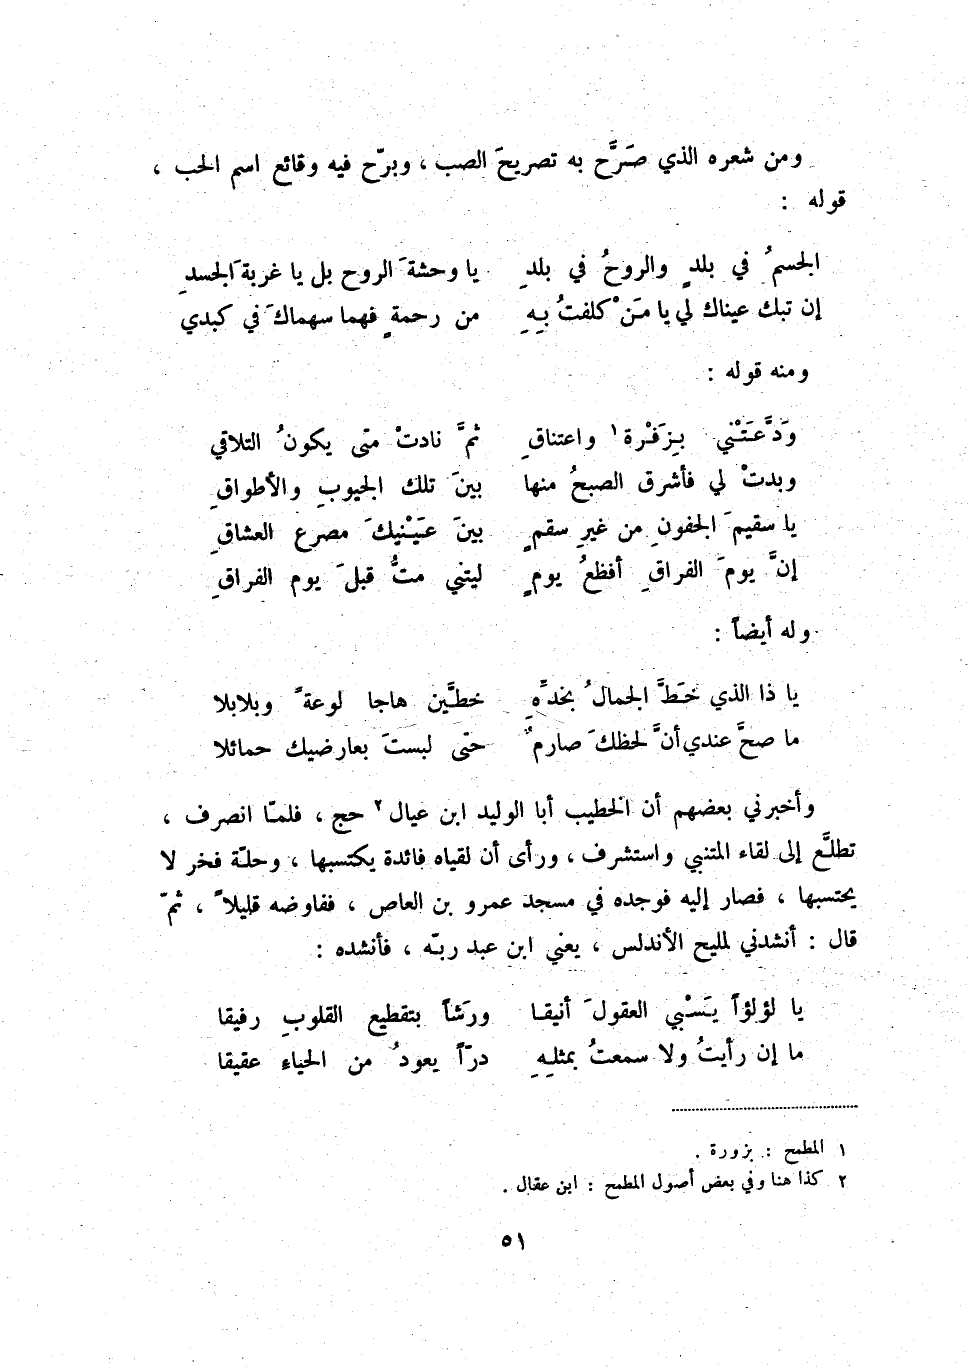 ومن شعره الذي صَرَّح به تصريحَ الصب ، وبرّح فيه وقائع اسم الحب ،
قوله :
الجسمُ في بلدٍ والروحُ في بلدِ يا وحشةَ الروح بل يا غربةَ الجسدِ
إن تبك عيناك لي يا مَنْ كلفتُ بِهِ من رحمةٍ فهما سهماكَ في كبدي
ومنه قوله :
وَدَّعَتْني بِزَفْرة١ واعتناقِ ثمَّ نادتْ متى يكونُ التلاقي
وبدتْ لي فأشرق الصبحُ منها بينَ تلك الجيوبِ والأطواقِ
يا سقيمَ الجفونِ من غيرِ سقمٍ بينَ عَيْنيكَ مصرع العشاقِ
إنَّ يومَ الفراقِ أفظعُ يومٍ ليتني متُّ قبلَ يوم الفراقِ
وله أيضاً :
يا ذا الذي خَطَّ الجمالُ بخدِّهِ خطَّين هاجا لوعةً وبلابلا
ما صحَّ عندي أنَّ لحظكَ صارمٌ حتى لبستَ بعارضيك حمائلا
وأخبرني بعضهم أن الخطيب أبا الوليد ابن عيال٢ حج ، فلمّا انصرف ،
تطلَّع إلى لقاء المتنبي واستشرف ، ورأى أن لقياه فائدة يكتسبها ، وحلّة فخر لا
يحتسبها ، فصار إليه فوجده في مسجد عمرو بن العاص ، ففاوضه قليلاً ، ثمّ
قال : أنشدني لمليح الأندلس ، يعني ابن عبد ربّه ، فأنشده :
يا لؤلؤاً يَسْبي العقولَ أنيقا ورَشاً بتقطيع القلوبِ رفيقا
ما إن رأيتُ ولا سمعتُ بمثلِهِ درّاً يعودُ من الحياءِ عقيقا
١ المطمح : بزورة .
٢ كذا هنا وفي بعض أصول المطمح : ابن عقال .
٥١